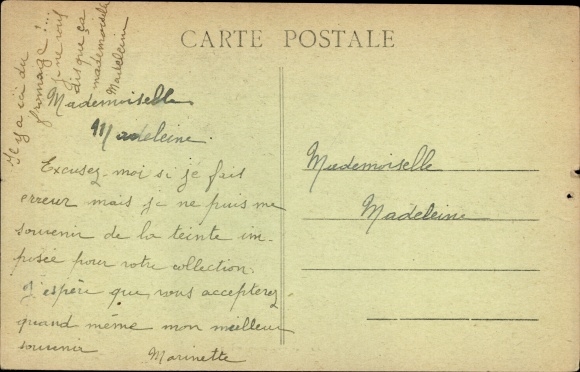 CARTE POSTALE
Il y a ici du
fromage!...
je ne vous
dis que ça
mademoiselle
Madeleine
Mademoiselle
Madeleine.
Excusez-moi si je fais
erreur mais je ne puis me
souvenir de la teinte im-
posée pour votre collection.
J'espère que vous accepterez
quand même mon meilleur
souvenir
Marinette
Mademoiselle
Madeleine